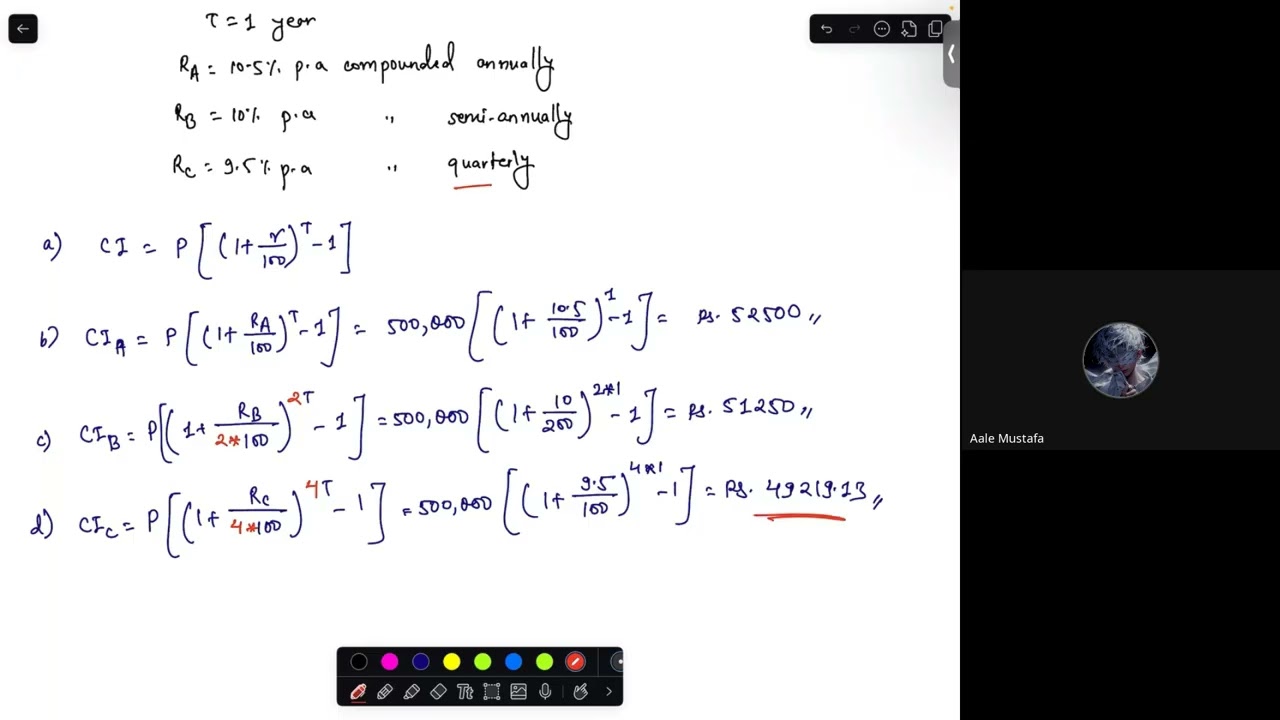 T = 1 year
R_A = 10.5% p.a compounded annually
R_B = 10% p.a " semi-annually
R_C = 9.5% p.a " quarterly
a) CI = P[(1+r/100)^T - 1]
b) CI_A = P[(1+R_A/100)^T - 1] = 500,000[(1+10.5/100)^1 - 1] = Rs. 52500 //
c) CI_B = P[(1+R_B/2*100)^2T - 1] = 500,000[(1+10/200)^2*1 - 1] = Rs. 51250 //
d) CI_C = P[(1+R_C/4*100)^4T - 1] = 500,000[(1+9.5/100)^4*1 - 1] = Rs. 49219.13 //
Aale Mustafa
Tt